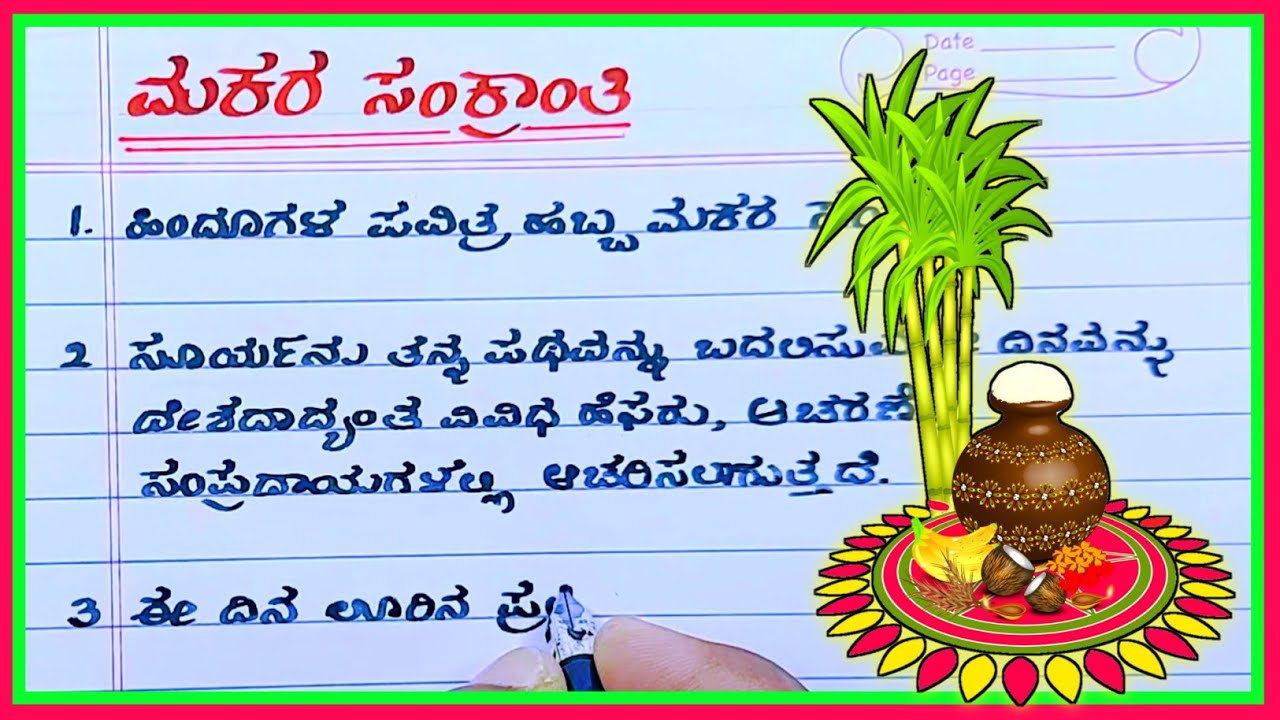 Date
Page
ಮಕರ ಸಂಕ್ರಾಂತಿ
1. ಹಿಂದೂಗಳ ಪವಿತ್ರ ಹಬ್ಬ ಮಕರ
2 ಸೂರ್ಯನು ತನ್ನ ಪಥವನ್ನು ಬದಲಿಸುವ ದಿನವನ್ನು
ದೇಶದಾದ್ಯಂತ ವಿವಿಧ ಹೆಸರು, ಆಚರಣೆ
ಸಂಪ್ರದಾಯಗಳಲ್ಲಿ ಆಚರಿಸಲಾಗುತ್ತದೆ.
3 ಈ ದಿನ ಊರಿನ